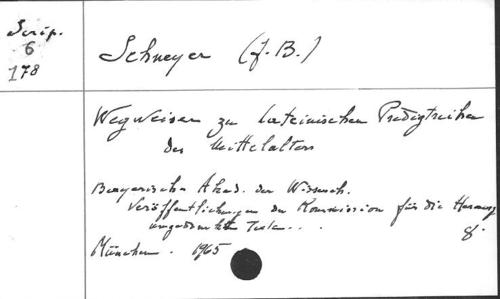 Scrip.
6
178
Schneyer (J.B.)
Wegweiser zu lateinischen Predigtreihen
des Mittelalters
Bayerische Akad. der Wissensch.
Veröffentlichungen der Kommission für die Herausg
ungedruckter Texte...
8°.
München. 1965